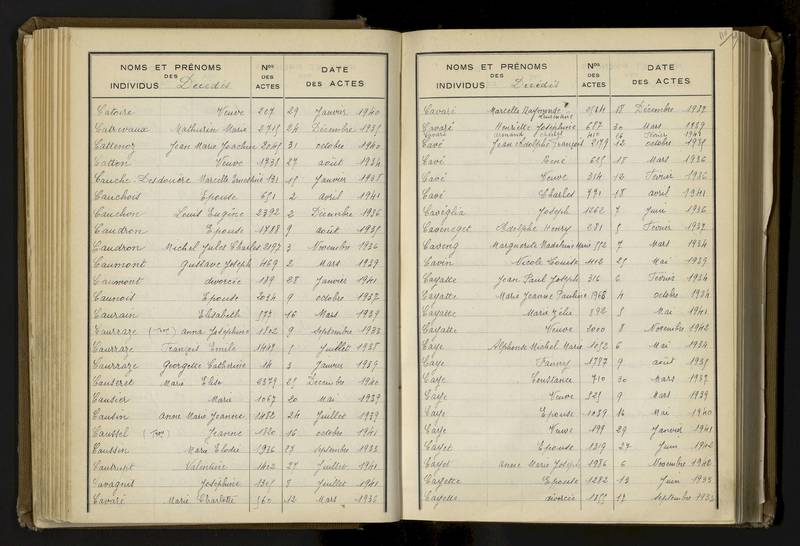 NOMS ET PRÉNOMS DES INDIVIDUS Décédés
Nos DES ACTES
DATE DES ACTES
Catoire Veuve 207 29 Janvier 1940
Catrevaux Mathurin Marie 2715 24 Décembre 1935
Cattenoz Jean Marie Joachim 2045 31 octobre 1940
Catton Veuve 1738 27 août 1934
Cauche-Desdouère Marcelle Ernestine 131 15 Janvier 1938
Cauchois Epouse 651 2 avril 1941
Cauchon Louis Eugène 2392 2 Décembre 1936
Caudron Epouse 1788 9 août 1935
Caudron Michel Jules Charles 2197 3 Novembre 1936
Caumont Gustave Joseph 469 2 Mars 1939
Caumont divorcée 189 28 Janvier 1941
Caunois Epouse 2034 9 octobre 1937
Caurain Elisabeth 577 16 Mars 1939
Caurraze anna Joséphine 1802 9 septembre 1933
Caurraze François Emile 1418 5 Juillet 1938
Caurraze Georgette Catherine 14 3 Janvier 1939
Causeret Marie Elise 2379 25 Décembre 1940
Causier Marie 1067 20 Mai 1939
Causin Anne Marie Jeanne 1482 24 Juillet 1939
Caussel Jeanne 1820 16 octobre 1941
Caussin Marie Elodie 1936 27 septembre 1933
Cautrupt Valentine 1402 27 Juillet 1941
Cavagnis Joséphine 1305 8 Juillet 1941
Cavaré Marie Charlotte 560 12 Mars 1936
NOMS ET PRÉNOMS DES INDIVIDUS Décédés
Nos DES ACTES
DATE DES ACTES
Cavaré Marcelle Raymonde 2564 18 Décembre 1937
Cavaré Henriette Joséphine 687 30 Mars 1939
Cavé Jean Adolphe François 2179 12 octobre 1935
Cavé René 605 18 Mars 1936
Cavé Veuve 314 12 Février 1936
Cavé Charles 771 18 avril 1941
Cavéglia Joseph 1262 7 Juin 1936
Caveneget Adolphe Henry 281 5 Février 1937
Caveng Marguerite Madeleine Marie 552 7 Mars 1934
Cavin Nicole Louise 1112 25 Mai 1939
Cayatte Jean Paul Joseph 316 6 Février 1934
Cayatte Marie Jeanne Pauline 1968 4 octobre 1934
Cayatte Marie Zélie 892 5 Mai 1941
Cayatte Veuve 2000 8 Novembre 1942
Caye Alphonse Michel Marie 1052 6 Mai 1934
Caye Fanny 1787 9 août 1935
Caye Constance 710 30 Mars 1937
Caye Veuve 525 9 Mars 1939
Caye Epouse 1039 14 Mai 1940
Caye Veuve 199 29 Janvier 1941
Cayet Epouse 1219 27 Juin 1942
Cayet Anne Marie Joseph 1986 6 Novembre 1942
Cayette Epouse 1282 13 Juin 1933
Cayette divorcée 1855 17 septembre 1933